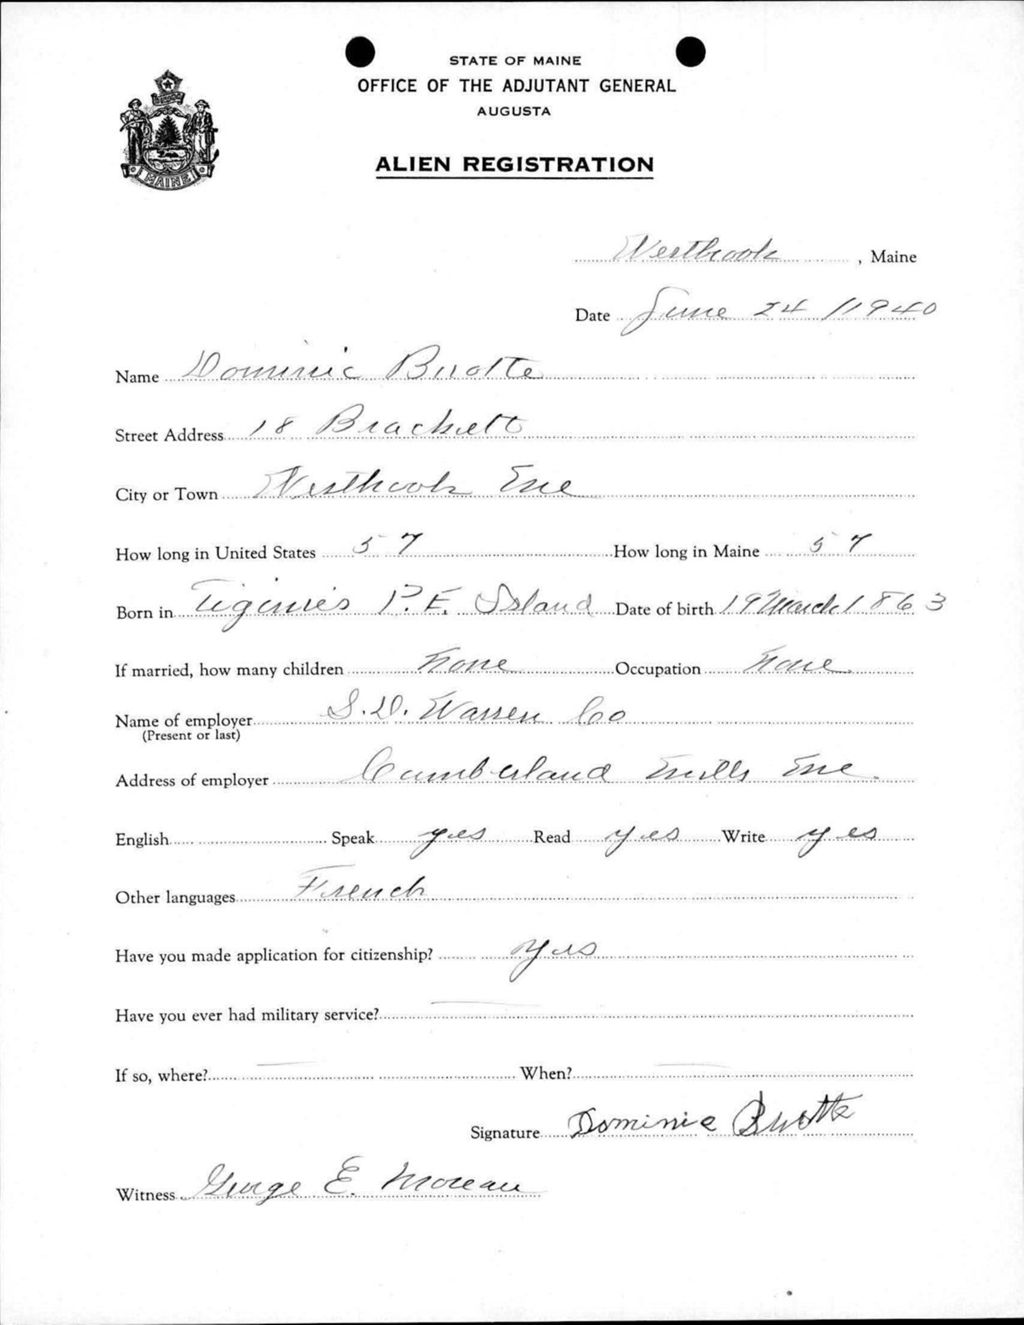 STATE OF MAINE
OFFICE OF THE ADJUTANT GENERAL
AUGUSTA
ALIEN REGISTRATION
MAINE
Westbrook, Maine
Date June 24 / 1940
Name Dominic Buotte
Street Address 18 Brackett
City or Town Westbrook Me
How long in United States 57 How long in Maine 57
Born in Tiginies P. E. Island Date of birth 19 March 1863
If married, how many children None Occupation None
Name of employer S. D. Warren Co
(Present or last)
Address of employer Cumberland Mills Me.
English Speak yes Read yes Write yes
Other languages French
Have you made application for citizenship? yes
Have you ever had military service? —
If so, where? — When? —
Signature Dominic Buotte
Witness George E. Moreau